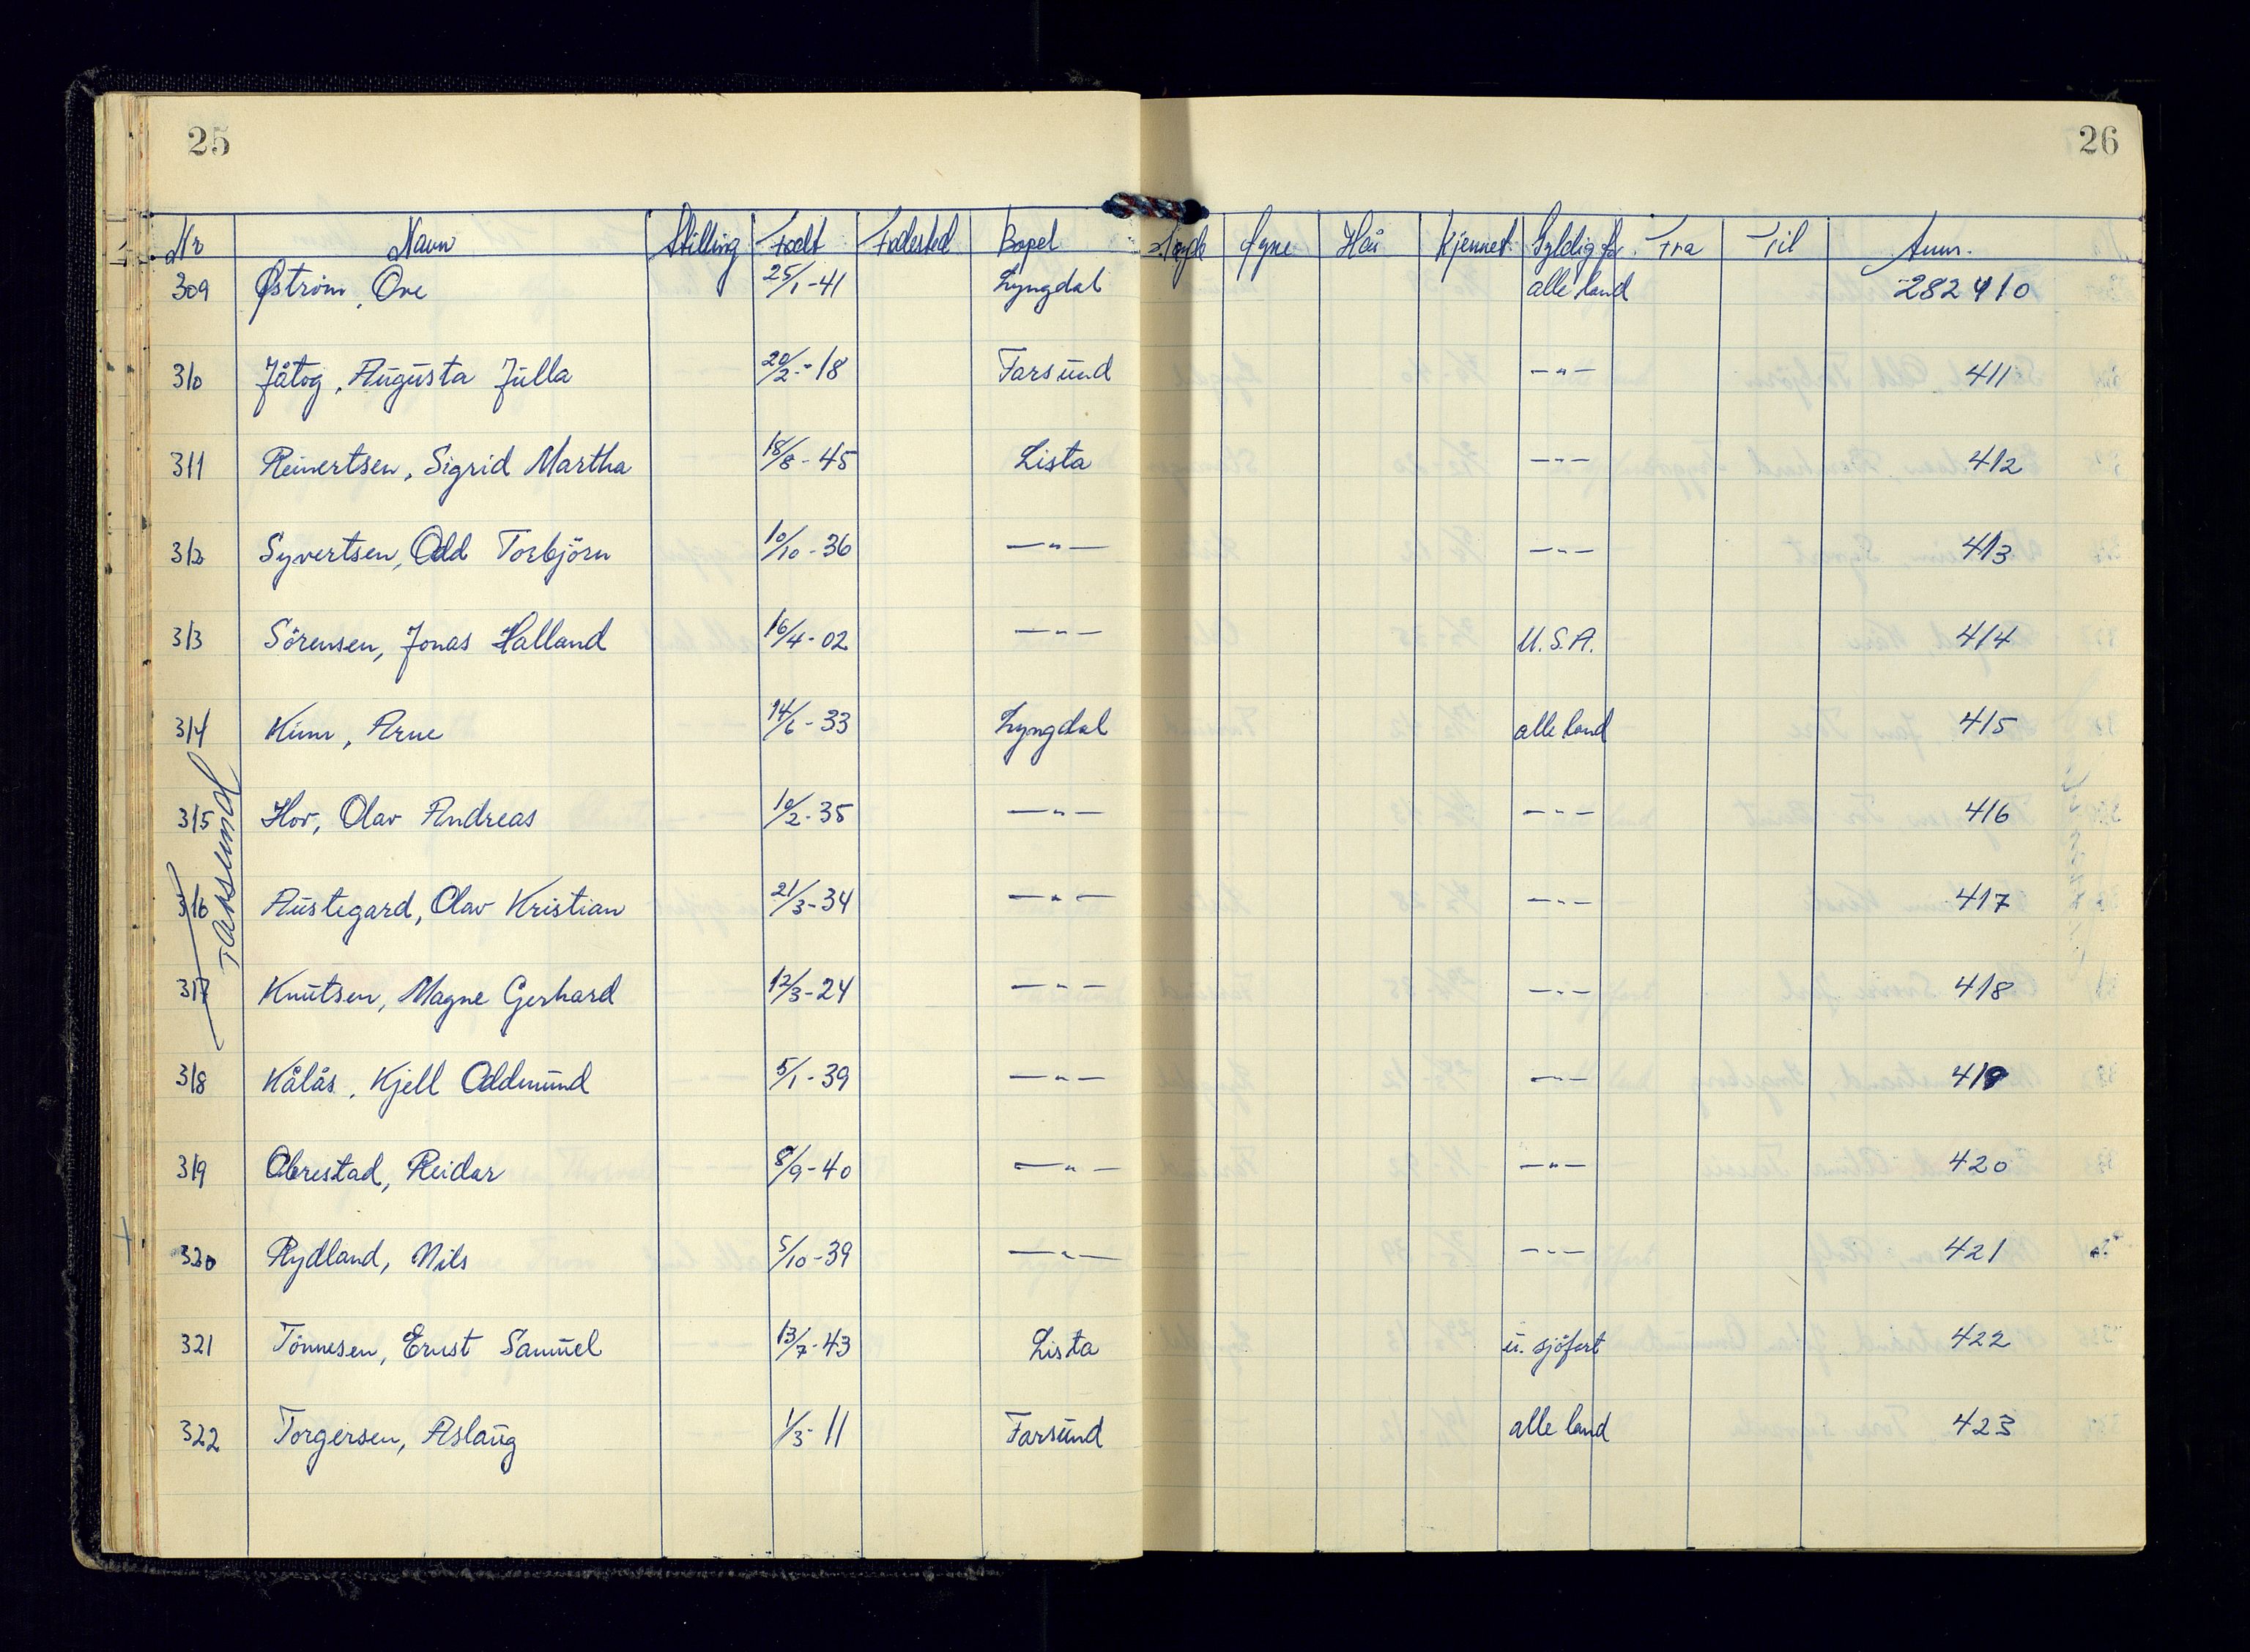 25
26
Nr Navn Stilling Födt Födested Bopel Høyde Øyne Hår Kjennet. Gyldig for Fra Til Anm.
309 Øström, Ove 25/1-41 Lyngdal alle land 282410
310 Jåtog, Augusta Julla 20/2-18 Farsund -"- 411
311 Reinertsen, Sigrid Martha 18/8-45 Lista -"- 412
312 Syvertsen, Odd Torbjörn 10/10-36 -"- -"- 413
313 Sörensen, Jonas Halland 16/4-02 -"- U.S.A. 414
314 Kum, Arne 14/6-33 Lyngdal alle land 415
315 Hov, Olav Andreas 10/2-35 -"- -"- 416
316 Austegard, Olav Kristian 21/3-34 -"- -"- 417
317 Knutsen, Magne Gerhard 12/3-24 -"- -"- 418
318 Kålås, Kjell Oddmund 5/1-39 -"- -"- 419
319 Obrestad, Reidar 8/9-40 -"- -"- 420
320 Rydland, Nils 5/10-39 -"- -"- 421
321 Tönnesen, Ernst Samuel 13/7-43 Lista u. sjöfart 422
322 Torgersen, Aslaug 1/3-11 Farsund alle land 423